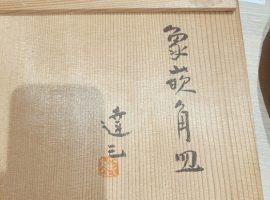 象嵌角皿
達三